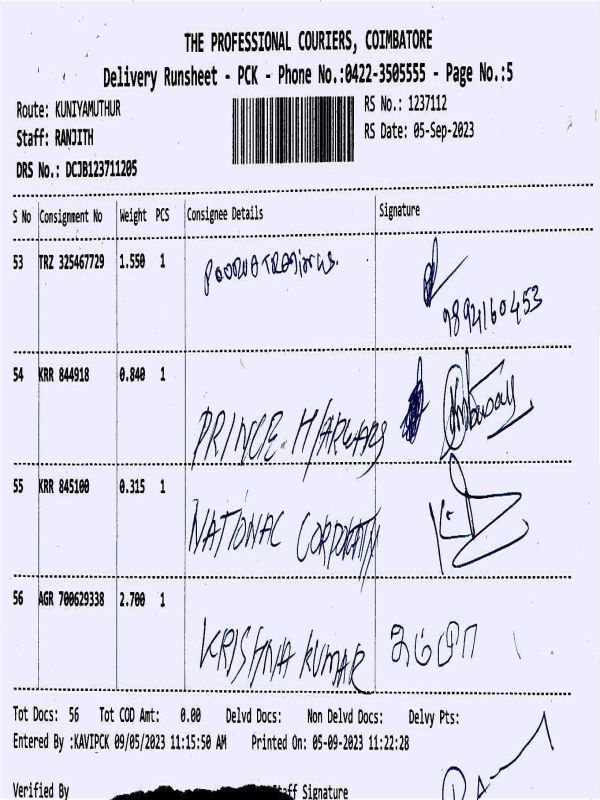 THE PROFESSIONAL COURIERS, COIMBATORE
Delivery Runsheet - PCK - Phone No.:0422-3505555 - Page No.:5
Route: KUNIYAMUTHUR RS No.: 1237112
Staff: RANJITH RS Date: 05-Sep-2023
DRS No.: DCJB123711205
S No Consignment No Weight PCS Consignee Details Signature
53 TRZ 325467729 1.550 1
9894160453
54 KRR 844918 0.840 1 PRINCE
55 KRR 845100 0.315 1 NATIONAL
56 AGR 700629338 2.700 1 KRISHNA KUMAR
Tot Docs: 56 Tot COD Amt: 0.00 Delvd Docs: Non Delvd Docs: Delvy Pts:
Entered By :KAVIPCK 09/05/2023 11:15:50 AM Printed On: 05-09-2023 11:22:28
Verified By Signature